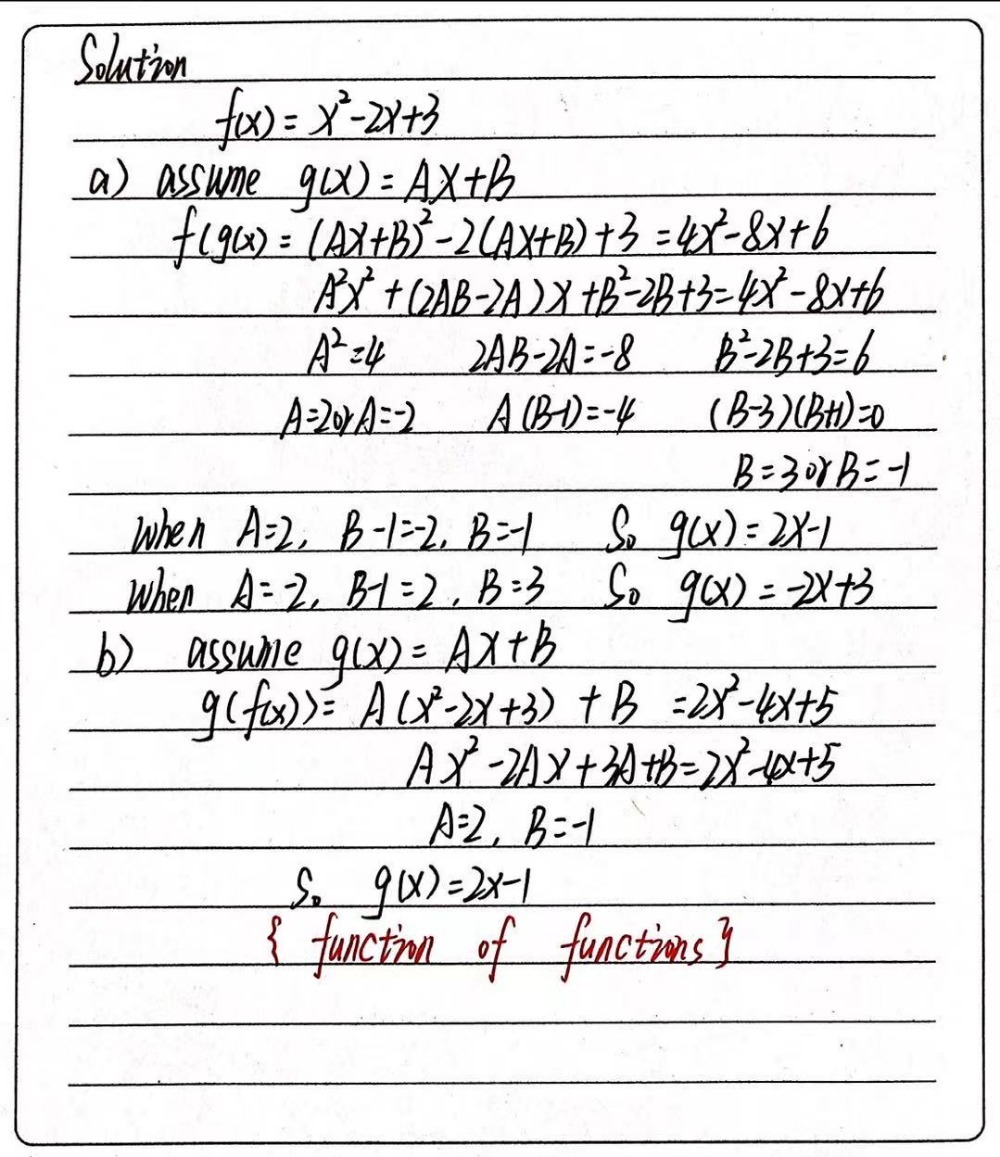 Solution
f(x) = x²-2x+3
a) assume g(x) = Ax+B
f(g(x) = (Ax+B)²-2(Ax+B)+3 = 4x²-8x+6
A²x²+(2AB-2A)x+B²-2B+3=4x²-8x+6
A²=4 2AB-2A=-8 B²-2B+3=6
A=2 or A=-2 A(B-1)=-4 (B-3)(B+1)=0
B=3 or B=-1
when A=2, B-1=-2, B=-1 So g(x)=2x-1
when A=-2, B-1=2, B=3 So g(x)=-2x+3
b) assume g(x) = Ax+B
g(f(x))= A(x²-2x+3) + B =2x²-4x+5
Ax²-2Ax+3A+B=2x²-4x+5
A=2, B=-1
So g(x)=2x-1
{ function of functions }